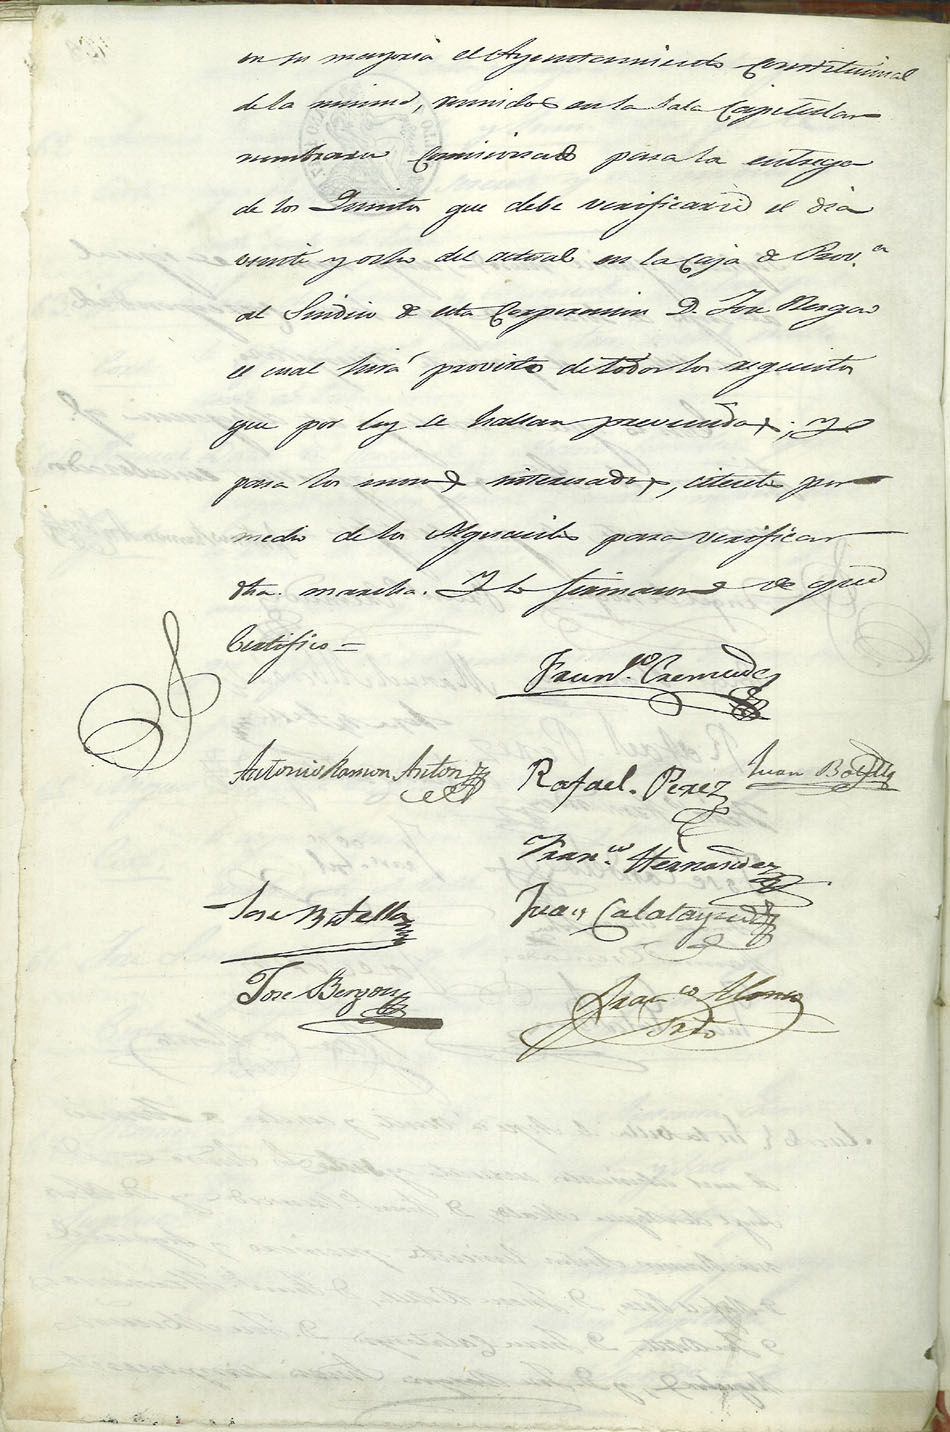 en su mayoria el Ayuntamiento Constitucional
de la misma, reunidos en la Sala Capitular
nombraron Comisionado para la entrega
de los Quintos que debe verificarse el dia
veinte y ocho del actual en la Caja de Prov.ª
al Sindico de esta Corporacion D. Jose Bergon
el cual hirá provisto de todos los requisitos
que por ley se hallan prevenidos; Y
para los mozos interesados, citesele por
medio de los Alguaciles para verificar
dha. marcha. Y lo firmaron de que
Certifico =
Fran.co Cremades
Antonio Ramon Anton
Rafael. Perez
Juan Botella
Fran.co Hernandez
Jose Botella
Juan Calatayud
Jose Bergon
Fran.co Alonso
Srio